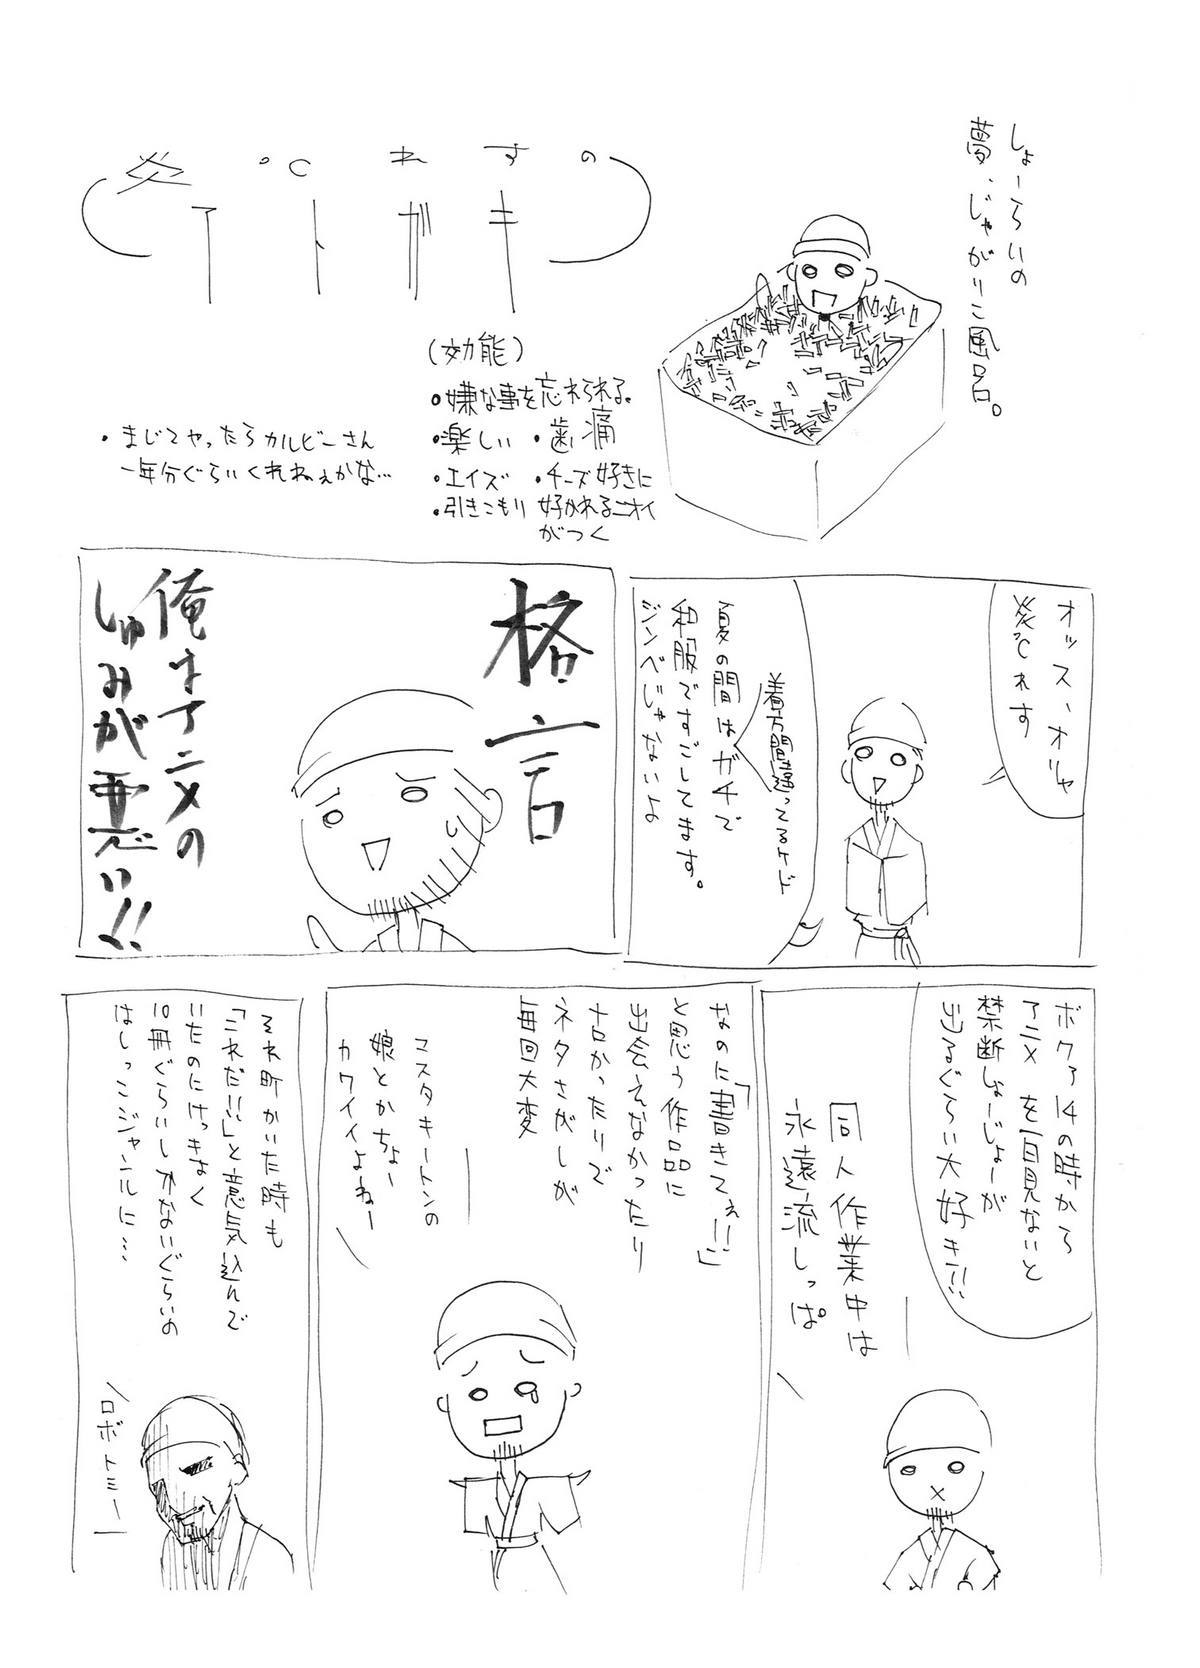 しょーらいの
夢、じゃがりこ風呂。
炎℃れすの
アトガキ
(効能)
・嫌な事を忘れられる。
・楽しい ・歯痛
・エイズ ・チーズ好きに
好かれるニオイ
がつく
・引きこもり
・まじでやったらカルビーさん
一年分ぐらいくれねぇかな…
オッス、オリャ
炎℃れす
夏の間はガチで
和服ですごしてます。
ジンベじゃないよ
着方間違ってるケド
格言
俺はアニメの
しゅみが悪い!!
ボクァ14の時から
アニメを一日見ないと
禁断しょーじょーが
出るぐらい大好き!!
同人作業中は
永遠流しっぱ
なのに「書きてぇ!!」
と思う作品に
出会えなかったり
ネタさがしが
毎回大変
マスタキートンの
娘とかちょー
カワイイよねー
かいた時も
「これだ!!」と意気込んで
いたのにけっきょく
10冊ぐらいしかないぐらいの
はしっこジャンルに…
ロボトミー